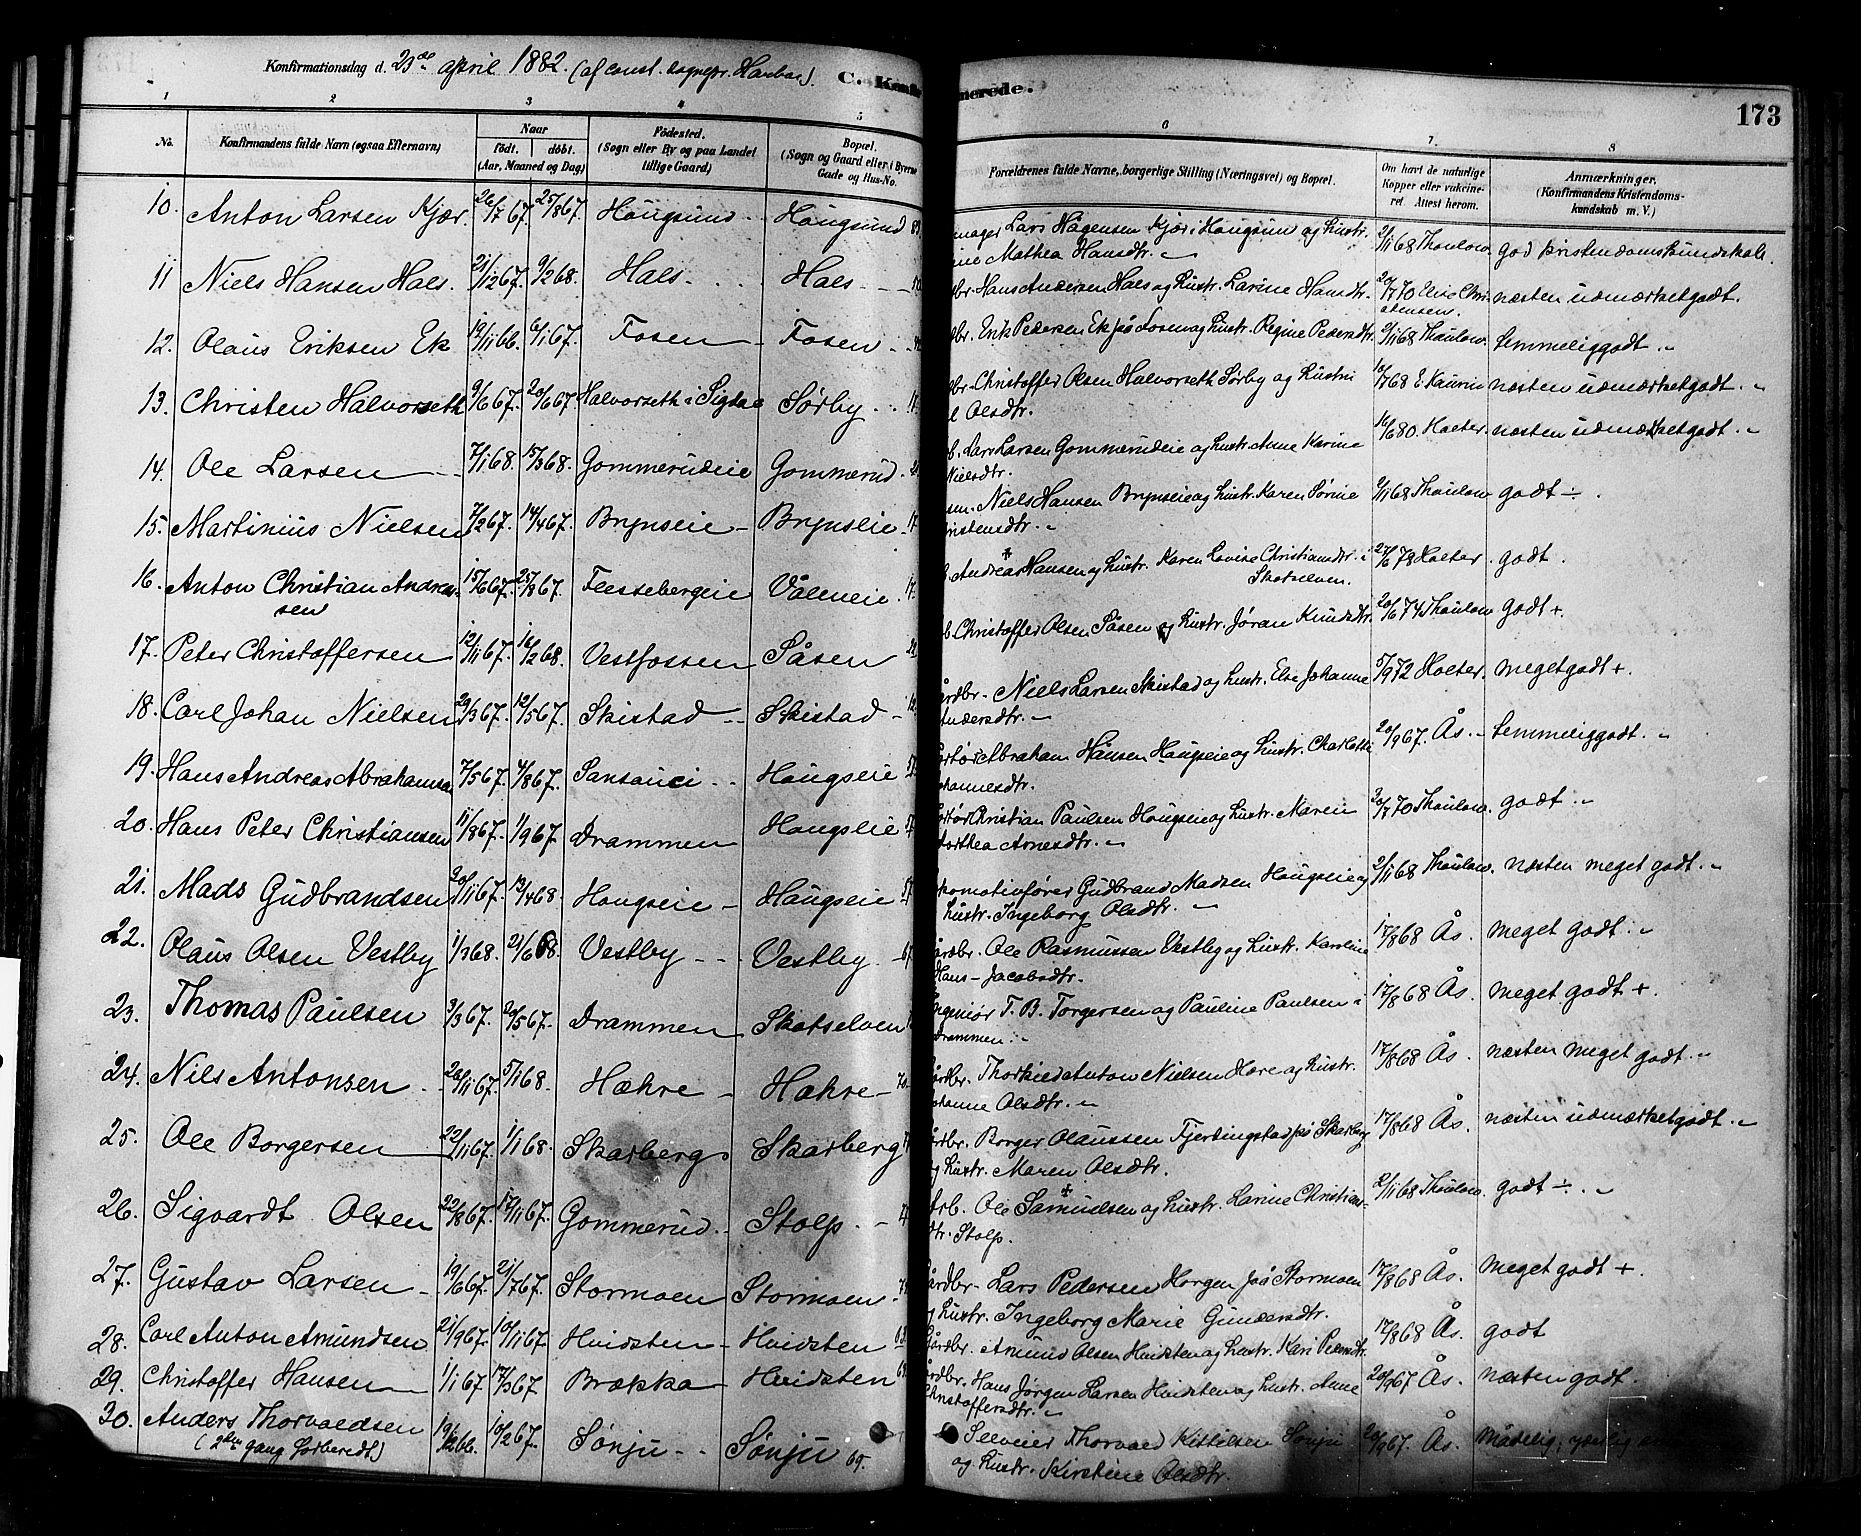 Konfirmationsdag d. 23de april 1882. (af const. sognepr.
C. Konfir
merede.
173
1 2 3 4 5 6 7. 8
No. Konfirmandens fulde Navn (ogsaa Efternavn) Naar født. døbt. (Aar, Maaned og Dag) Fødested. (Sogn eller By og paa Landet tillige Gaard) Bopæl. (Sogn og Gaard eller i Byerne Gade og Hus-No. Forældrenes fulde Navne, borgerlige Stilling (Næringsvei) og Bopæl. Om havt de naturlige Kopper eller vakcineret. Attest herom. Anmærkninger. (Konfirmandens Kristendomskundskab m. V.)
10. Anton Larsen Kjær. 26/7 67. 25/8 67. Hougsund Hougsund Lars Hågensen Kjær i Hougsun og hustr. 2/11 68 Thaulow. god kristendomskundskab.
Mathea Hansdtr.
11 Niels Hansen Hals. 21/12 67. 9/2 68. Hals Hals Hans Andersen Hals og hustr. Larine Hansdtr. næsten udmærket godt.
12. Olaus Eriksen Ek 19/11 66. 6/1 67. Fosen Fosen Erik Pedersen Ek på Fosen og hustr. Regine Pedersdtr. 2/11 68 Thaulow. temmelig godt.
13. Christen Halvorseth 9/6 67. 20/6 67. Halvorseth i Sigdal Sørby Christoffer Olsen Halvorseth Sørby og hustru næsten udmærket godt.
Olsdtr.
14. Ole Larsen 7/1 68. 15/3 68. Gommerudeie Gommerud Lars Larsen Gommerudeie og hustr. Anne Karine 16/6 80. Hoeter. næsten udmærket godt.
Nielsdtr.
15. Martinius Nielsen 7/2 67. 14/4 67. Brynseie Brynseie 17 Niels Hansen Brynseie og hustr. Karen Sørine 2/11 68 Thaulow godt ÷.
ristensdtr.
16. Anton Christian Andreassen 15/6 67. 25/8 67. Flessebergeie Våleneie 17 Andreas Hansen og hustr. Karen Lovise Christiansdtr. i Skotselven. 27/6 78 Hoeter. godt.
17. Peter Christoffersen 12/11 67. 16/2 68. Vestfossen Såsen Christoffer Olsen Såsen og hustr. Jøran Knudsdtr. 20/6 74 Thaulow godt +
18. Carl Johan Nielsen 29/3 67. 12/5 67. Skistad Skistad Niels Larsen Skistad og hustr. Else Johanne 5/9 72 Hoeter. meget godt +.
Andersdtr.
19. Hans Andreas Abrahamsen 7/5 67. 4/8 67. Sansouci Hougseie Abraham Hansen Hougseie og hustr. Charlotte 20/9 67. Ås. temmelig godt.
ohannesdtr.
20. Hans Peter Christiansen 11/8 67. 1/9 67. Drammen Hougseie Christian Paulsen Hougseie og hustr. Maren 20/7 70 Thaulow. godt
orthea Arnesdtr.
21. Mads Gudbrandsen 20/11 67. 12/4 68. Hougseie Hougseie 57 okomotivfører Gudbrand Madsen Hougseie og 2/11 68 Thaulow. næsten meget godt.
hustr. Ingeborg Olsdtr.
22. Olaus Olsen Vestby 1/3 68. 21/6 68. Vestby Vestby 67 årdbr. Ole Rasmussen Vestby og hustr. Karoline 17/8 68 Ås. meget godt.
Hans-Jacobsdtr.
23. Thomas Paulsen 3/3 67. 20/5 67. Drammen Skotselven ngeniør T. B. Torgersen og Pauline Paulsen i 17/8 68 Ås. meget godt +.
Drammen.
24. Niels Antonsen 26/11 67. 5/1 68. Hæhre Hæhre årdbr. Thorkild Anton Nielsen Hære og hustr. 17/8 68 Ås. næsten meget godt.
ohanne Olsdtr.
25. Ole Borgersen 22/11 67. 1/1 68. Skarberg Skarberg årdbr. Borger Olaussen Fjerdingstad på Skarberg 17/8 68 Ås. næsten udmærket godt.
og hustr. Maren Olsdtr.
26. Sigvardt Olsen 22/8 67. 17/11 67. Gommerud Stolp Arb. Ole Samuelsen og hustr. Larine Christians- 2/11 68 Thaulow. godt ÷.
dtr. Stolp.
27. Gustav Larsen 19/6 67. 21/7 67. Stormoen Stormoen årdbr. Lars Pedersen Horgen på Stormoen 17/8 68 Ås. meget godt +.
og hustr. Ingeborg Marie Gundersdtr.
28. Carl Anton Amundsen 21/9 67. 10/11 67. Hvidsten Hvidsten årdbr. Amund Olsen Hvidsten og hustr. Kari Pedersdtr. 17/8 68 Ås. godt
29. Christoffer Hansen 1/1 67. 17/3 67. Brækka Hvidsten årdbr. Hans Jørgen Larsen Hvidsten og hustr. Anne 20/9 67 Ås. næsten godt.
Christoffersdtr.
30. Anders Thorvaldsen 19/12 66. 10/2 67. Sønju Sønju 69. Selveier Thorvald Kittilsen Sønju 20/9 67. Ås. Mådelig,
(2den gang forberedt) og hustr. Kirstine Olsdtr.